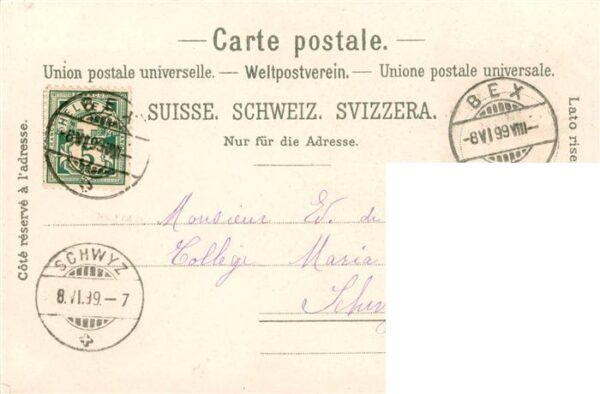 Carte postale.
Union postale universelle. — Weltpostverein. — Unione postale universale.
SUISSE. SCHWEIZ. SVIZZERA.
Nur für die Adresse.
Côté réservé à l'adresse.
Lato rise
BEX
BEX
-8 VI 99 VIII-
Monsieur Ed. du
Collège Maria
SCHWYZ
8. VI. 99. - 7
5